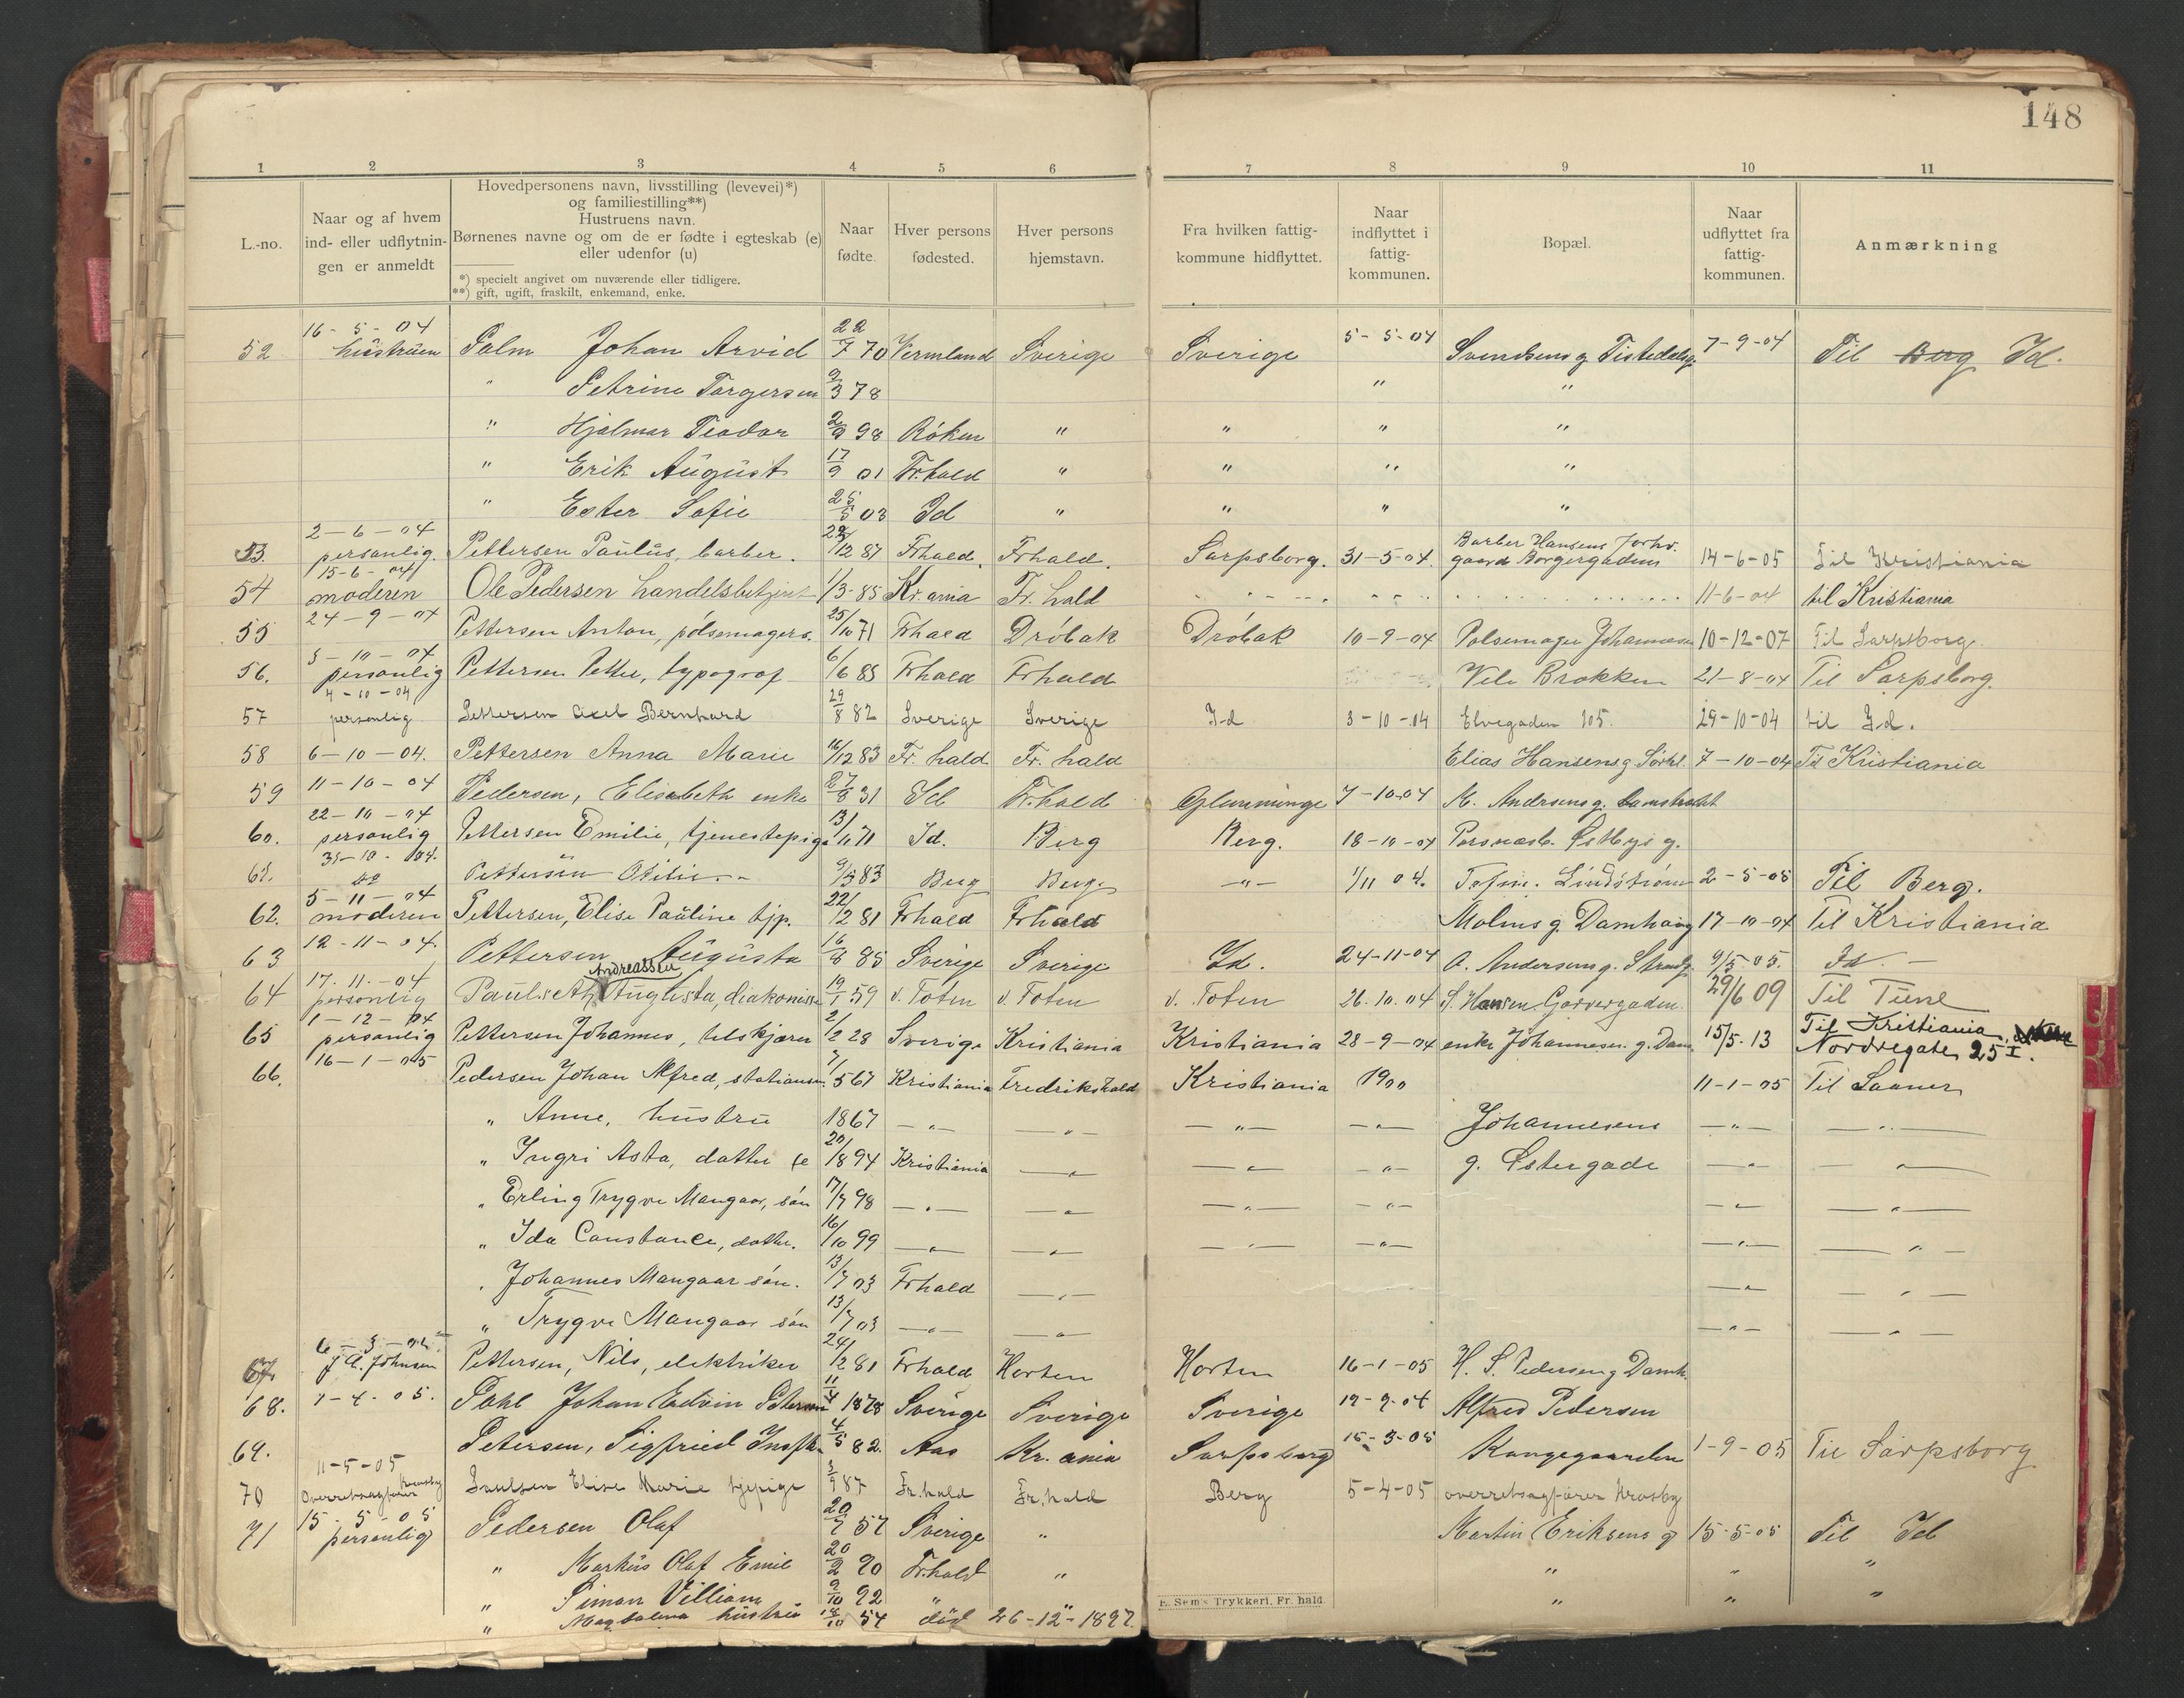 148
1 2 3 4 5 6 7 8 9 10 11
L.-no.
Naar og af hvem
ind- eller udflytnin-
gen er anmeldt
Hovedpersonens navn, livsstilling (levevei)*)
og familiestilling**)
Hustruens navn.
Børnenes navne og om de er fødte i egteskab (e)
eller udenfor (u)
*) specielt angivet om nuværende eller tidligere.
**) gift, ugift, fraskilt, enkemand, enke.
Naar
fødte.
Hver persons
fødested.
Hver persons
hjemstavn.
Fra hvilken fattig-
kommune hidflyttet.
Naar
indflyttet i
fattig-
kommunen.
Bopæl.
Naar
udflyttet fra
fattig-
kommunen.
Anmærkning
52 16-5-04 hustruen Palm Johan Arvid 22/7 70 Vermland Sverige Sverige 5-5-04 Svendsens g Tistedalsg. 7-9-04 Til Berg Id.
" Petrine Torgersen 9/3 78 " "
" Hjalmar Teodor 2/9 98 Röken " " " "
" Erik August 17/9 01 Fr.hald " " " "
" Ester Sofie 25/5 03 Id " " " "
53. 2-6-04 personlig. Pettersen Paulus, barber. /12 87 Frhald. Frhald. Sarpsborg. 31-5-04. Barber Hansens
gaard Borgergadens 14-6-05 Til Kristiania
54 15-6-04 moderen Ole Pedersen handelsbetjent 1/3-85 Kr.ania Fr. hald 11-6-04 til Kristiania
55 24-9-04 Pettersen Anton, pølsemagers. 25/10 71 Frhald Dröbak Dröbak 10-9-04 Pølsemager Johannesen 10-12-07 Til Sarpsborg.
56. 3-10-04 personlig Pettersen Petter, typograf 6/6 85 Frhald Frhald Vele Brokken 21-8-04 Til Sarpsborg.
57 4-10-04 personlig Pettersen Axel Bernhard 29/8 82 Sverige Sverige Id 3-10-04 Elvegaden 105. 29-10-04 til Id.
58 6-10-04. Pettersen Anna Marie 16/12 83 Fr. hald Fr. hald Elias Hansens g Sørhl. 7-10-04 Til Kristiania
59 11-10-04 Pedersen, Elisabeth enke 27/8 31 Id Fr.hald Glemminge 7-10-04 M. Andersens g.
60. 22-10-04 personlig Pettersen Emilie, tjenestepige 13/11 71 Id. Berg Berg. 18-10-04 Porsnæsb. Østbys g.
61. 31-10-04. Pettersen Otilie 9/5 83 Berg Berg. -"- 1/11 04. Lindstrøm 2-5-05 Til Berg.
62. 5-11-04 moderen Pettersen, Elise Pauline tjp. 22/12 81 Frhald Frhald Molms g. Damhaug 17-10-04 Til Kristiania
63 12-11-04. Pettersen Augusta 16/8 85 Sverige Sverige Id. 24-11-04 A. Andersens g. Strandg. 9/5 05. Id. -
Andreassen
64 17.11.-04 personlig Augusta, diakonisse 19/1 59 v. Toten v. Toten v. Toten 26.10.04 S. Hansen Garvergaden. 29/6 09 Til Tune
65 1-12-04 personlig Pettersen Johannes, 2/2 28 Sverige Kristiania Kristiania 28-9-04 enke Johannesen g. Dam. 15/5.13 Til Kristiania,
Nordregate, 25 I.
66. 16-1-05 Pedersen Johan Alfred, stationsm. 7/5 67 Kristiania Fredrikshald Kristiania 1900 11-1-05 Til Saaner
" Anne, hustru 1867 -"- -"- -"- -"- Johannesens -"- -"-
" Ingri Asta, datter (e 20/8 94 Kristiania -"- -"- -"- g. Østergade -"- -"-
" Erling Trygve Mangaar, søn 17/7 98 -"- -"- -"- -"- -"- -"-
" Ida Constance, datter. 16/10 99 -"- -"- -"- -"- -"- -"-
" Johannes Mangaar søn. 13/7 03 Frhald -"- -"- -"-
" Trygve Mangaar søn 13/7 03 -"- -"- -"- -"-
67. J. A. Johnsen Pettersen, Nils, elektriker 24/12 81 Frhald Horten Horten 16-1-05 H. S. Pedersen g Damh.
68. 7-4-05. Pohl Johan Edvin Peterson 11/4 1878 Sverige Sverige Sverige 12-9-04 Alfred Pedersen
69. Petersen, Sigfried 4/5 82. Aas Kr. ania Sarpsborg 15-3-05 Kongegaarden 1-9-05 Til Sarpsborg
70 11-5-05 Overretssagfører Krosby Paulsen Elise Marie tjpige 3/9 87 Fr.hald Fr.hald Berg 5-4-05 overretssagfører Krosby
71 15-5-05 personlig Pedersen Olaf 20/7 57 Sverige " Martin Eriksens g 15-5-05 Til Id
" Markus Olaf Emil 20/2 90 Fr.hald " " " "
" Simon Villiam 9/10 92 " " " " "
" Magdalena hustru 18/10 54 død 26-12-1897.
E. Sem's Trykkeri, Fr. hald.